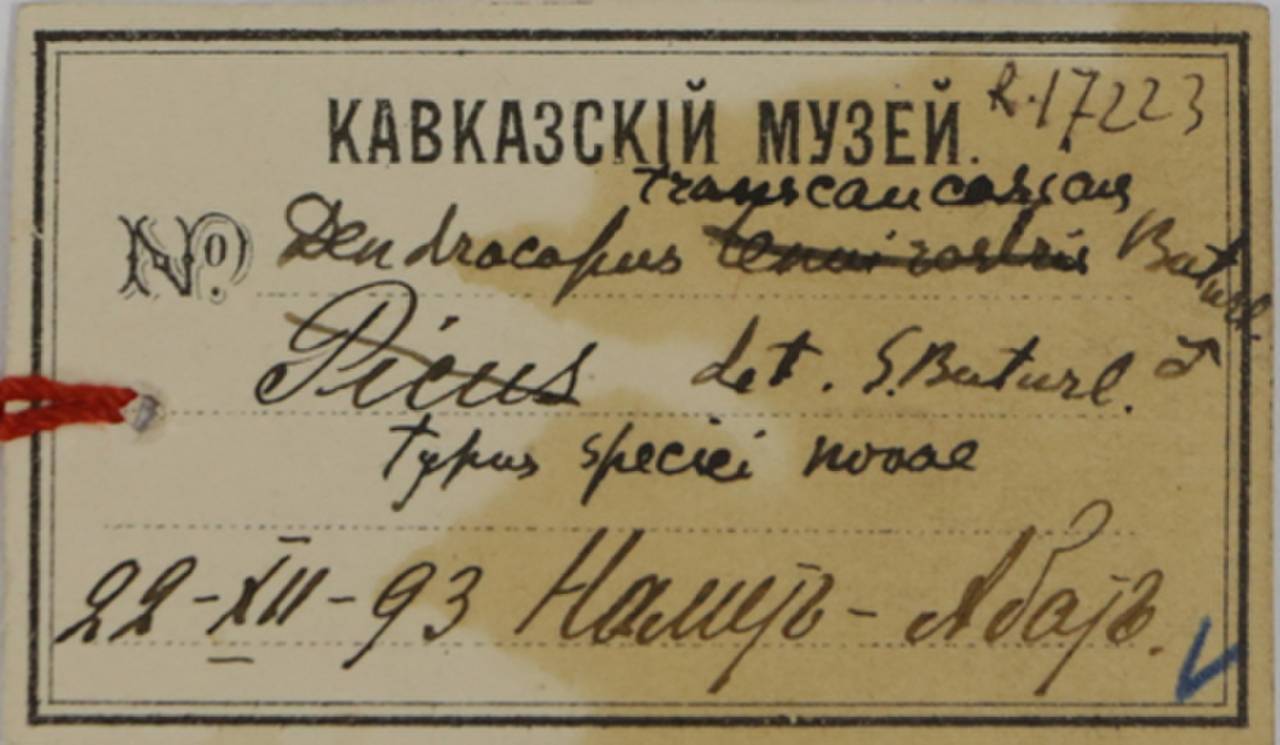 КАВКАЗСКІЙ МУЗЕЙ. R.17223
transcaucasicus
№ Dendrocopus tenuirostris Buturl.
Picus det. S. Buturl. ♂
typus speciei novae
22-XII-93